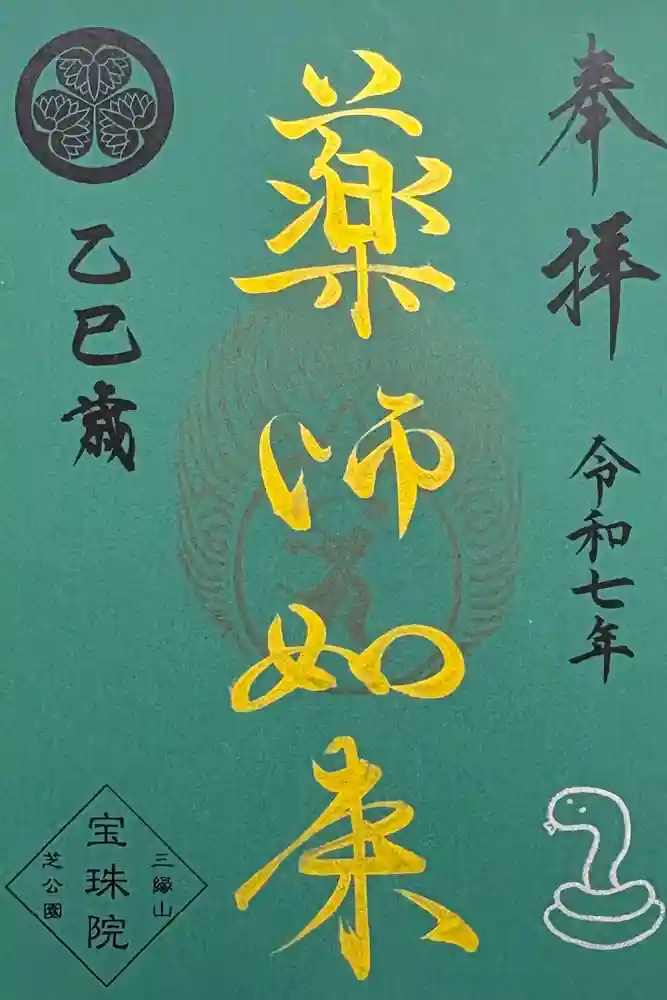 奉拝
令和七年
薬師如来
乙巳歳
三縁山
宝珠院
芝公園